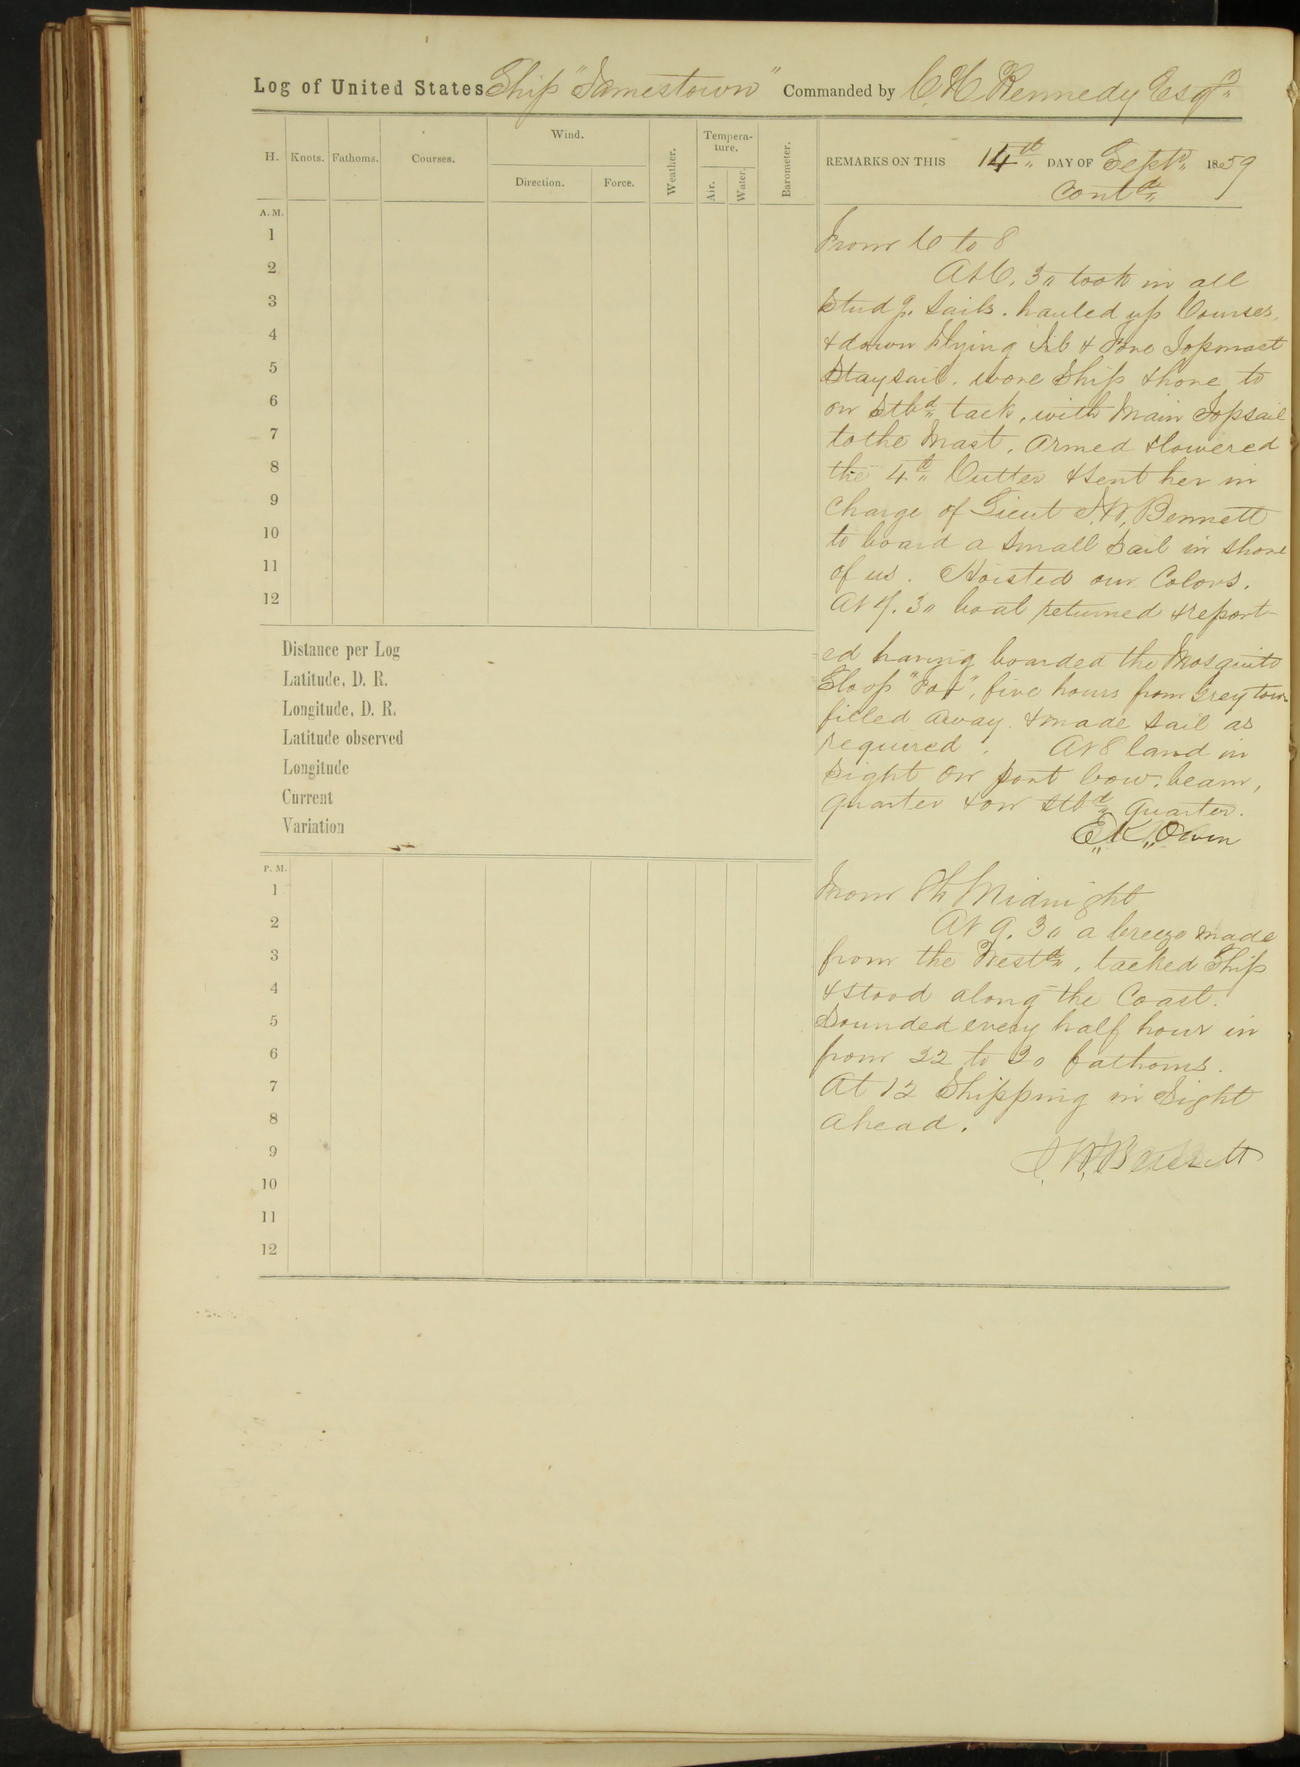 Log of United States Ship "Jamestown" Commanded by C. H. Kennedy Esqr
H. Knots. Fathoms. Courses. Wind. Direction. Force. Weather. Tempera-ture. Air. Water. Barometer.
REMARKS ON THIS 14th DAY OF Septr 1859
Contd
A. M.
1
2
3
4
5
6
7
8
9
10
11
12
Distance per Log
Latitude, D. R.
Longitude, D. R.
Latitude observed
Longitude
Current
Variation
P. M.
1
2
3
4
5
6
7
8
9
10
11
12
From 6 to 8
At 6.30 took in all
Studg. Sails. hauled up Courses,
& down Flying Jib & Fore Topmast
Staysail. wore Ship & hove to
on Stbd tack, with Main Topsail
to the Mast. Armed & lowered
the 4th Cutter & sent her in
Charge of Lieut J. W. Bennett
to board a Small Sail in shore
of us. Hoisted our Colors.
At 7.30 boat returned & report-
ed having boarded the Mosquito
Sloop, five hours from Greytown
filled away. & made sail as
required. At 8 land in
Sight on port bow, beam,
quarter & on Stbd quarter.
E. K. Owen
From 8 to Midnight
At 9.30 a breeze made
from the Westd, tacked Ship
& stood along the Coast.
Sounded every half hour in
from 22 to 30 fathoms.
At 12 Shipping in Sight
Ahead.
J. W. Bennett